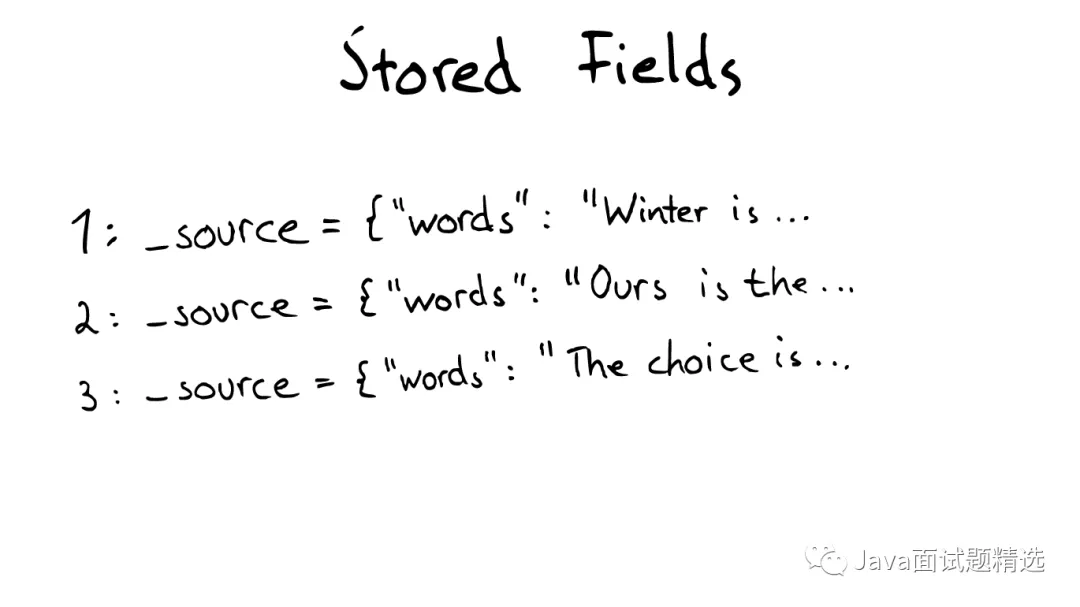 Stored Fields
1: _source = {"words": "Winter is ...
2: _source = {"words": "Ours is the ...
3: _source = {"words": "The choice is ...
Java面试题精选